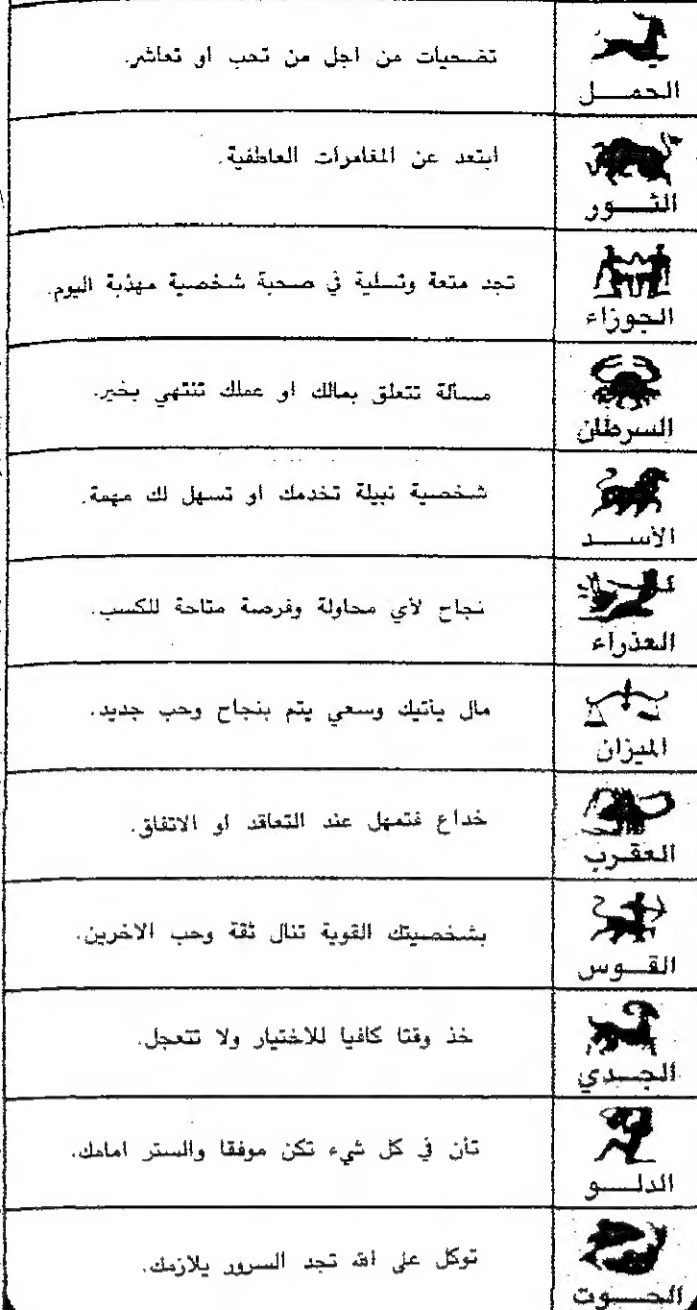 تضحيات من اجل من تحب او تعاشر.
الحمـــل
ابتعد عن المغامرات العاطفية.
الثـــور
تجد متعة وتسلية في صحبة شخصية مهذبة اليوم.
الجوزاء
مسألة تتعلق بمالك او عملك تنتهي بخير.
السرطان
شخصية نبيلة تخدمك او تسهل لك مهمة.
الأســـد
نجاح لأي محاولة وفرصة متاحة للكسب.
العذراء
مال يأتيك وسعي يتم بنجاح وحب جديد.
الميزان
خداع فتمهل عند التعاقد او الاتفاق.
العقـرب
بشخصيتك القوية تنال ثقة وحب الاخرين.
القـــوس
خذ وقتا كافيا للاختيار ولا تتعجل.
الجـــدي
تأن في كل شيء تكن موفقا والستر امامك.
الدلـــو
توكل على الله تجد السرور يلازمك.
الحـــوت